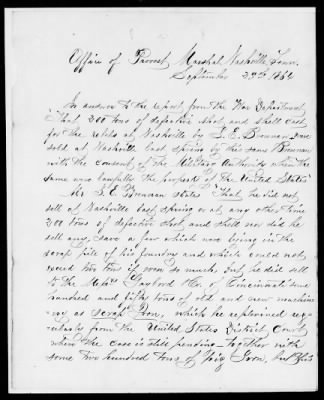 Office of Provost Marshal Nashville Tenn.
September 29th 1862
In answer to the report from the War Department,
"That 200 tons of defective shot and shell cast
for the rebels at Nashville by T. E. Brennan was
sold at Nashville last spring by this same Brennan
with the consent of the Military Authority when the
same was lawfully the property of the United States"
Mr T. E. Brennan states "That he did not
sell at Nashville last spring or at any other time
200 tons of defective shot and shell nor did he
sell any, save a few which were lying in the
scrap pile of his foundry and which could not
exceed two tons if even so much, but he did sell
to the Messrs Gaylord Co. of Cincinnati one
hundred and fifty tons of old and new machine
ry as scrap Iron, which he replevined
from the United States District Court
where the case is still pending together with
some two hundred tons of Pig Iron, but